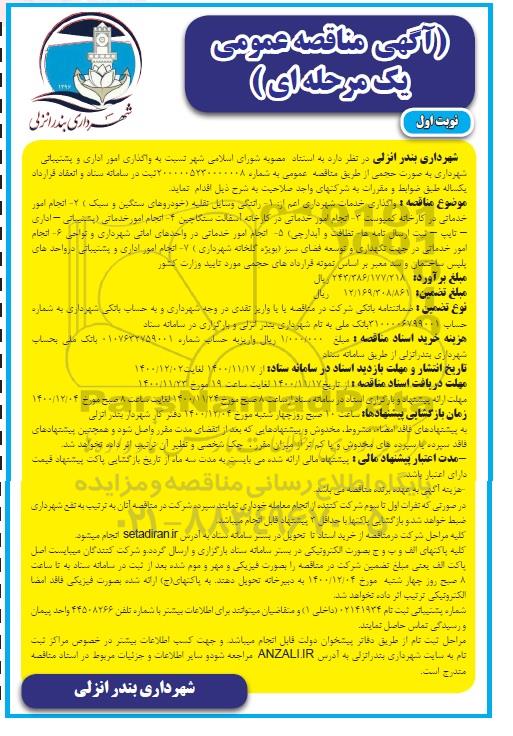 (آگهی مناقصه عمومی
یک مرحله ای)
۱۳۹۶
شهرداری بندرانزلی
نوبت اول
شهرداری بندر انزلی در نظر دارد به استناد مصوبه شورای اسلامی شهر نسبت به واگذاری امور اداری و پشتیبانی
شهرداری به صورت حجمی از طریق مناقصه عمومی به شماره ۲۰۰۰۰۰۵۲۳۰۰۰۰۰۰۸ ثبت در سامانه ستاد و انعقاد قرارداد
یکساله طبق ضوابط و مقررات به شرکتهای واجد صلاحیت به شرح ذیل اقدام نماید.
موضوع مناقصه : واگذاری خدمات شهرداری اعم از: ۱- رانندگی وسایل نقلیه (خودروهای سنگین و سبک ) ۲- انجام امور
خدماتی در کارخانه کمپوست ۳- انجام امور خدماتی در کارخانه آسفالت سنگاچین ۴- انجام امور خدماتی (پشتیبانی – اداری
– تایپ – ثبت ارسال نامه ها- نظافت و آبدارچی) ۵- انجام امور خدماتی در واحدهای امانی شهرداری و نواحی ۶- انجام
امور خدماتی در جهت نگهداری و توسعه فضای سبز (بویژه گلخانه شهرداری ) ۷- انجام امور اداری و پشتیبانی درواحد های
پلیس ساختمان و سد معبر بر اساس نمونه قرارداد های حجمی مورد تایید وزارت کشور
مبلغ برآورد: ۲۴۳/۳۸۶/۱۷۷/۲۱۸ ریال
مبلغ تضمین: ۱۲/۱۶۹/۳۰۸/۸۶۱ ریال
نوع تضمین : ضمانتنامه بانکی شرکت در مناقصه یا یا واریز نقدی در وجه شهرداری و به حساب بانکی شهرداری به شماره
حساب ۳۱۰۰۰۰۶۷۹۹۰۰۱ بانک ملی به نام شهرداری بندر انزلی و بارگزاری در سامانه ستاد
هزینه خرید اسناد مناقصه : مبلغ ۱/۰۰۰/۰۰۰ ریال واریزبه حساب شماره ۰۱۰۷۶۳۲۷۵۹۰۰۱ بانک ملی بحساب
شهرداری بندرانزلی از طریق سامانه ستاد
تاریخ انتشار و مهلت بازدید اسناد در سامانه ستاد: از ۱۴۰۰/۱۱/۱۷ لغایت ۱۴۰۰/۱۲/۰۲
مهلت دریافت اسناد مناقصه : از تاریخ ۱۴۰۰/۱۱/۱۷ لغایت ساعت ۱۹ مورخ ۱۴۰۰/۱۱/۲۳
مهلت ارائه پیشنهاد و بارگزاری اسناد در سامانه ستاد:از ساعت ۸ صبح مورخ ۱۴۰۰/۱۱/۲۴ لغایت ساعت ۸ صبح مورخ ۱۴۰۰/۱۲/۰۴
زمان بازگشایی پیشنهادها: ساعت ۱۰ صبح روزچهار شنبه مورخ ۱۴۰۰/۱۲/۰۴ دفتر کار شهردار بندر انزلی
به پیشنهادهای فاقد امضاء، مشروط، مخدوش و پیشنهادهایی که بعد از انقضای مدت مقرر واصل شود و همچنین پیشنهادهای
فاقد سپرده یا سپرده های مخدوش و یا کم تر از میزان مقرر ، چک شخصی و نظیر آن ترتیب اثر داده نخواهد شد.
–مدت اعتبار پیشنهاد مالی : پیشنهاد مالی ارائه شده می بایست به مدت سه ماه از تاریخ بازگشایی پاکت پیشنهاد قیمت
دارای اعتبار باشد.
-هزینه آگهی به عهده برنده مناقصه می باشد
در صورتی که نفرات اول تا سوم شرکت کننده از انجام معامله خوداری نمایند سپرده شرکت در مناقصه آنان به ترتیب به نفع شهرداری
ضبط خواهد شد و بازگشایی پاکتها با حداقل ۲ پیشنهاد قابل انجام میباشد.
کلیه مراحل شرکت درمناقصه از خرید اسناد تا تحویل در بستر سامانه ستاد به آدرس setadiran.ir انجام میشود.
کلیه پاکتهای الف و ب و ج بصورت الکترونیکی در بستر سامانه ستاد بارگزاری و ارسال گردد.و شرکت کنندگان میبایست اصل
پاکت الف یعنی مبلغ تضمین شرکت در مناقصه را بصورت فیزیکی و مهر و موم شده بعد از ثبت در سامانه ستاد به تا ساعت
۸ صبح روز چهار شنبه مورخ ۱۴۰۰/۱۲/۰۴ به دبیرخانه تحویل دهند. به پاکتهای(ج) ارائه شده بصورت فیزیکی فاقد امضا
الکترونیکی ترتیب اثر داده نخواهد شد.
شماره پشتیبانی ثبت نام ۰۲۱۴۱۹۳۴ (داخلی ۱) و متقاضیان میتوانند برای اطلاعات بیشتر با شماره تلفن ۴۴۵۰۸۲۶۶ واحد پیمان
و رسیدگی تماس حاصل نمایند.
مراحل ثبت نام از طریق دفاتر پیشخوان دولت قابل انجام میباشد. و جهت کسب اطلاعات بیشتر در خصوص مراکز ثبت
نام به سایت شهرداری بندرانزلی به آدرس ANZALI.IR مراجعه شودو سایر اطلاعات و جزئیات مربوط در اسناد مناقصه
مندرج است.
شهرداری بندر انزلی
پایگاه اطلاع رسانی مناقصه و مزایده